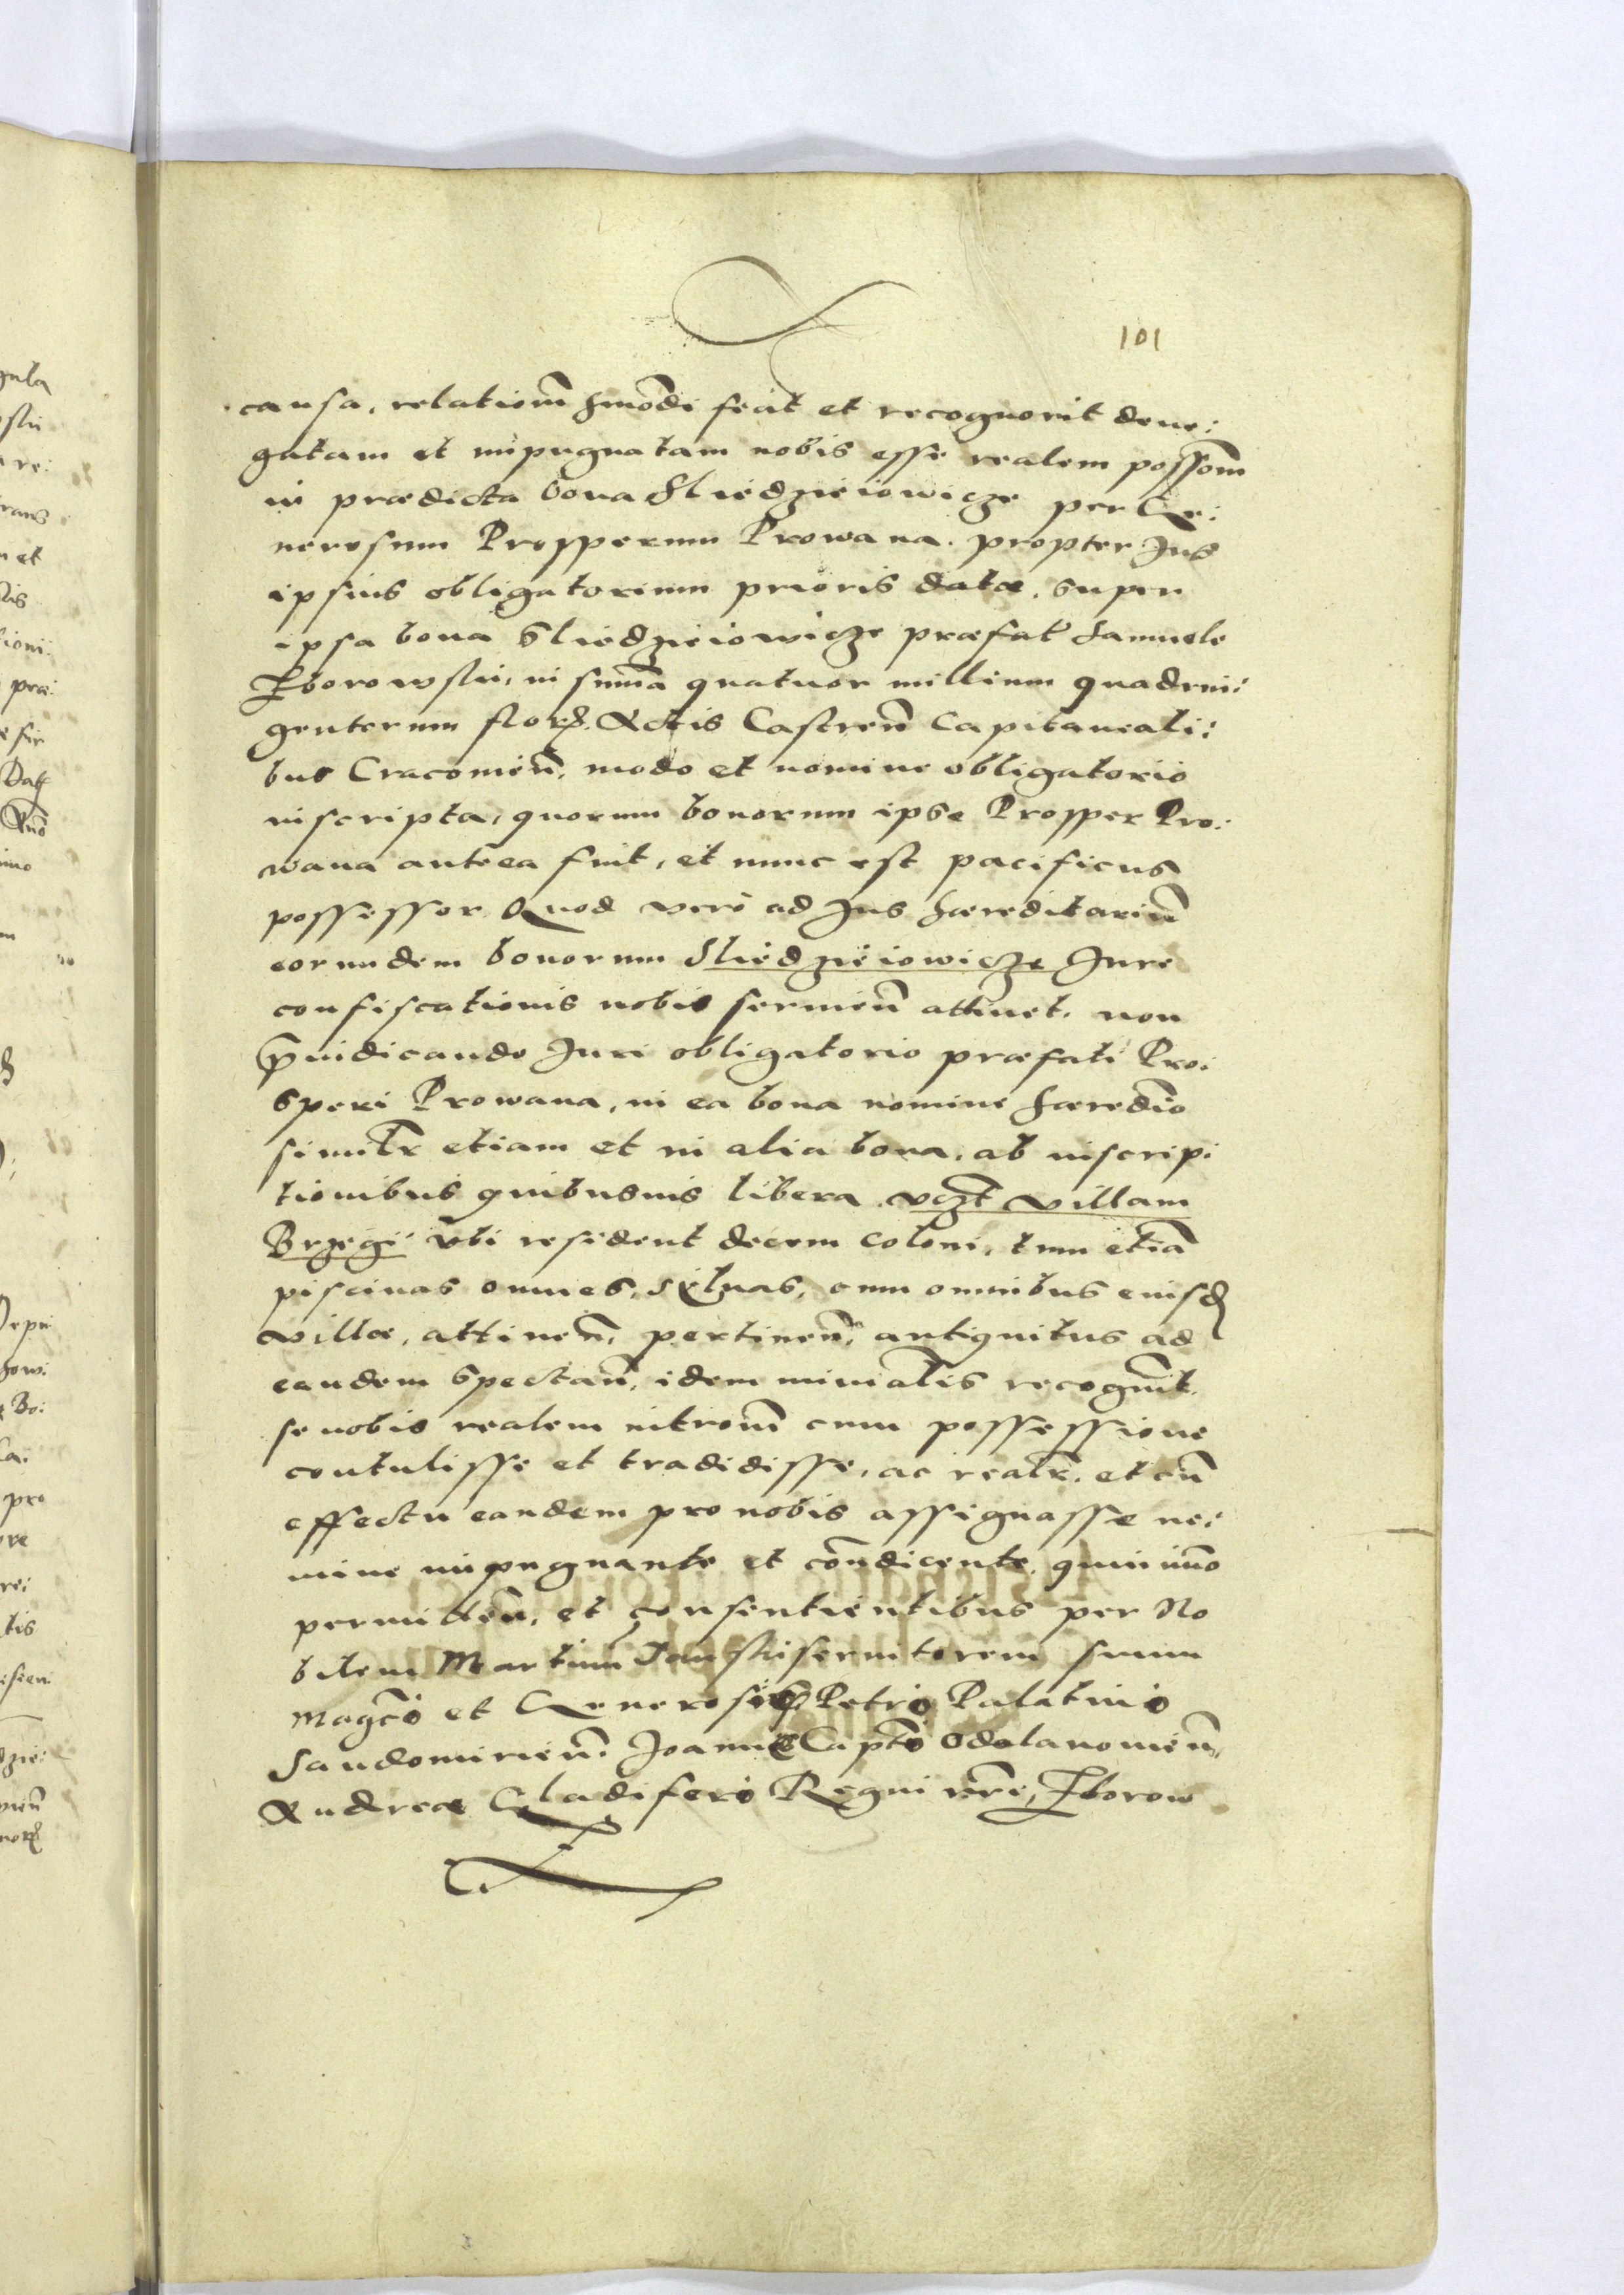 101
causa, relationẽ hmõdi fecit et recognovit dene:
gatam et impugnatam nobis esse realem possom̃
in prædicta bona Sliedzieiowicze per Ge:
nerosum Prosperum Prowana. propter Jus
ipsius obligatorium prioris datæ, super
ipsa bona Sliedzieiowicze præfat Samuele
Zborowski, in sum̃a quatuor millium quadrin:
gentorum flor. Actis Castreñ Capitaneali:
bus Cracovieñ, modo et nomine obligatorio
inscripta, quorum bonorum ipse Prosper Pro:
wana antea fuit, et nunc est pacificus
possessor. Quod vero ad Jus hæreditariũ
eorundem bonorum Sliedzieiowicze Jure
confiscationis nobis servieñ attinet, non
p̃iudicando Juri obligatorio præfati Pro:
speri Prowana, in ea bona nomine hæredio
similr etiam et in alia bona, ab inscrip:
tionibus quibusuis libera vczt villam
Brzegi vbi resident decem coloni, tum etiã
piscinas omnes, syluas, cum omnibus eiusd
villæ, attineñ, pertineñ, antiquitus ad
eandem spectañ, idem mĩnialis recognuit,
se nobis realem introm̃ cum possessione
contulisse et tradidisse, ac realr, et cũ
effectu eandem pro nobis assignasse ne:
mine impugnante et cõndicente, quin imo
permitteñ, et consentientibus per No
bilem Martinũ servitorem suum
Magcõ et Generosis Petrio Palatinio
Sandomirieñ. Joanne Captõ Odolanovieñ,
Andreæ Gladifero Regni nrĩ, Zborow